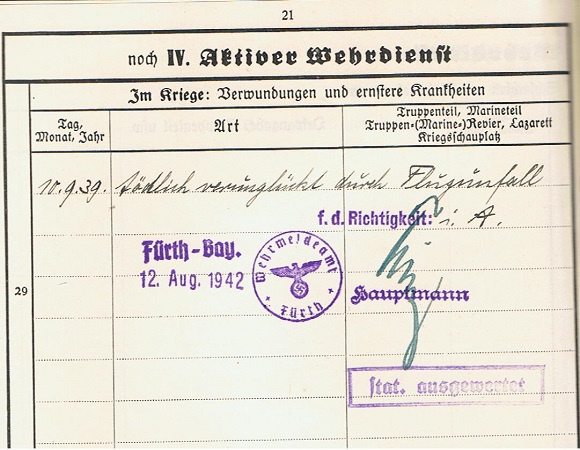 21
noch IV. Aktiver Wehrdienst
Im Kriege: Verwundungen und ernstere Krankheiten
Tag, Monat, Jahr
Art
Truppenteil, Marineteil
Truppen-(Marine-)Revier, Lazarett
Kriegsschauplatz
10.9.39. tödlich verunglückt durch Flugunfall
f. d. Richtigkeit: i. A.
Fürth-Bay.
12. Aug. 1942
Wehrmeldeamt
Fürth
Hauptmann
29
stat. ausgewertet